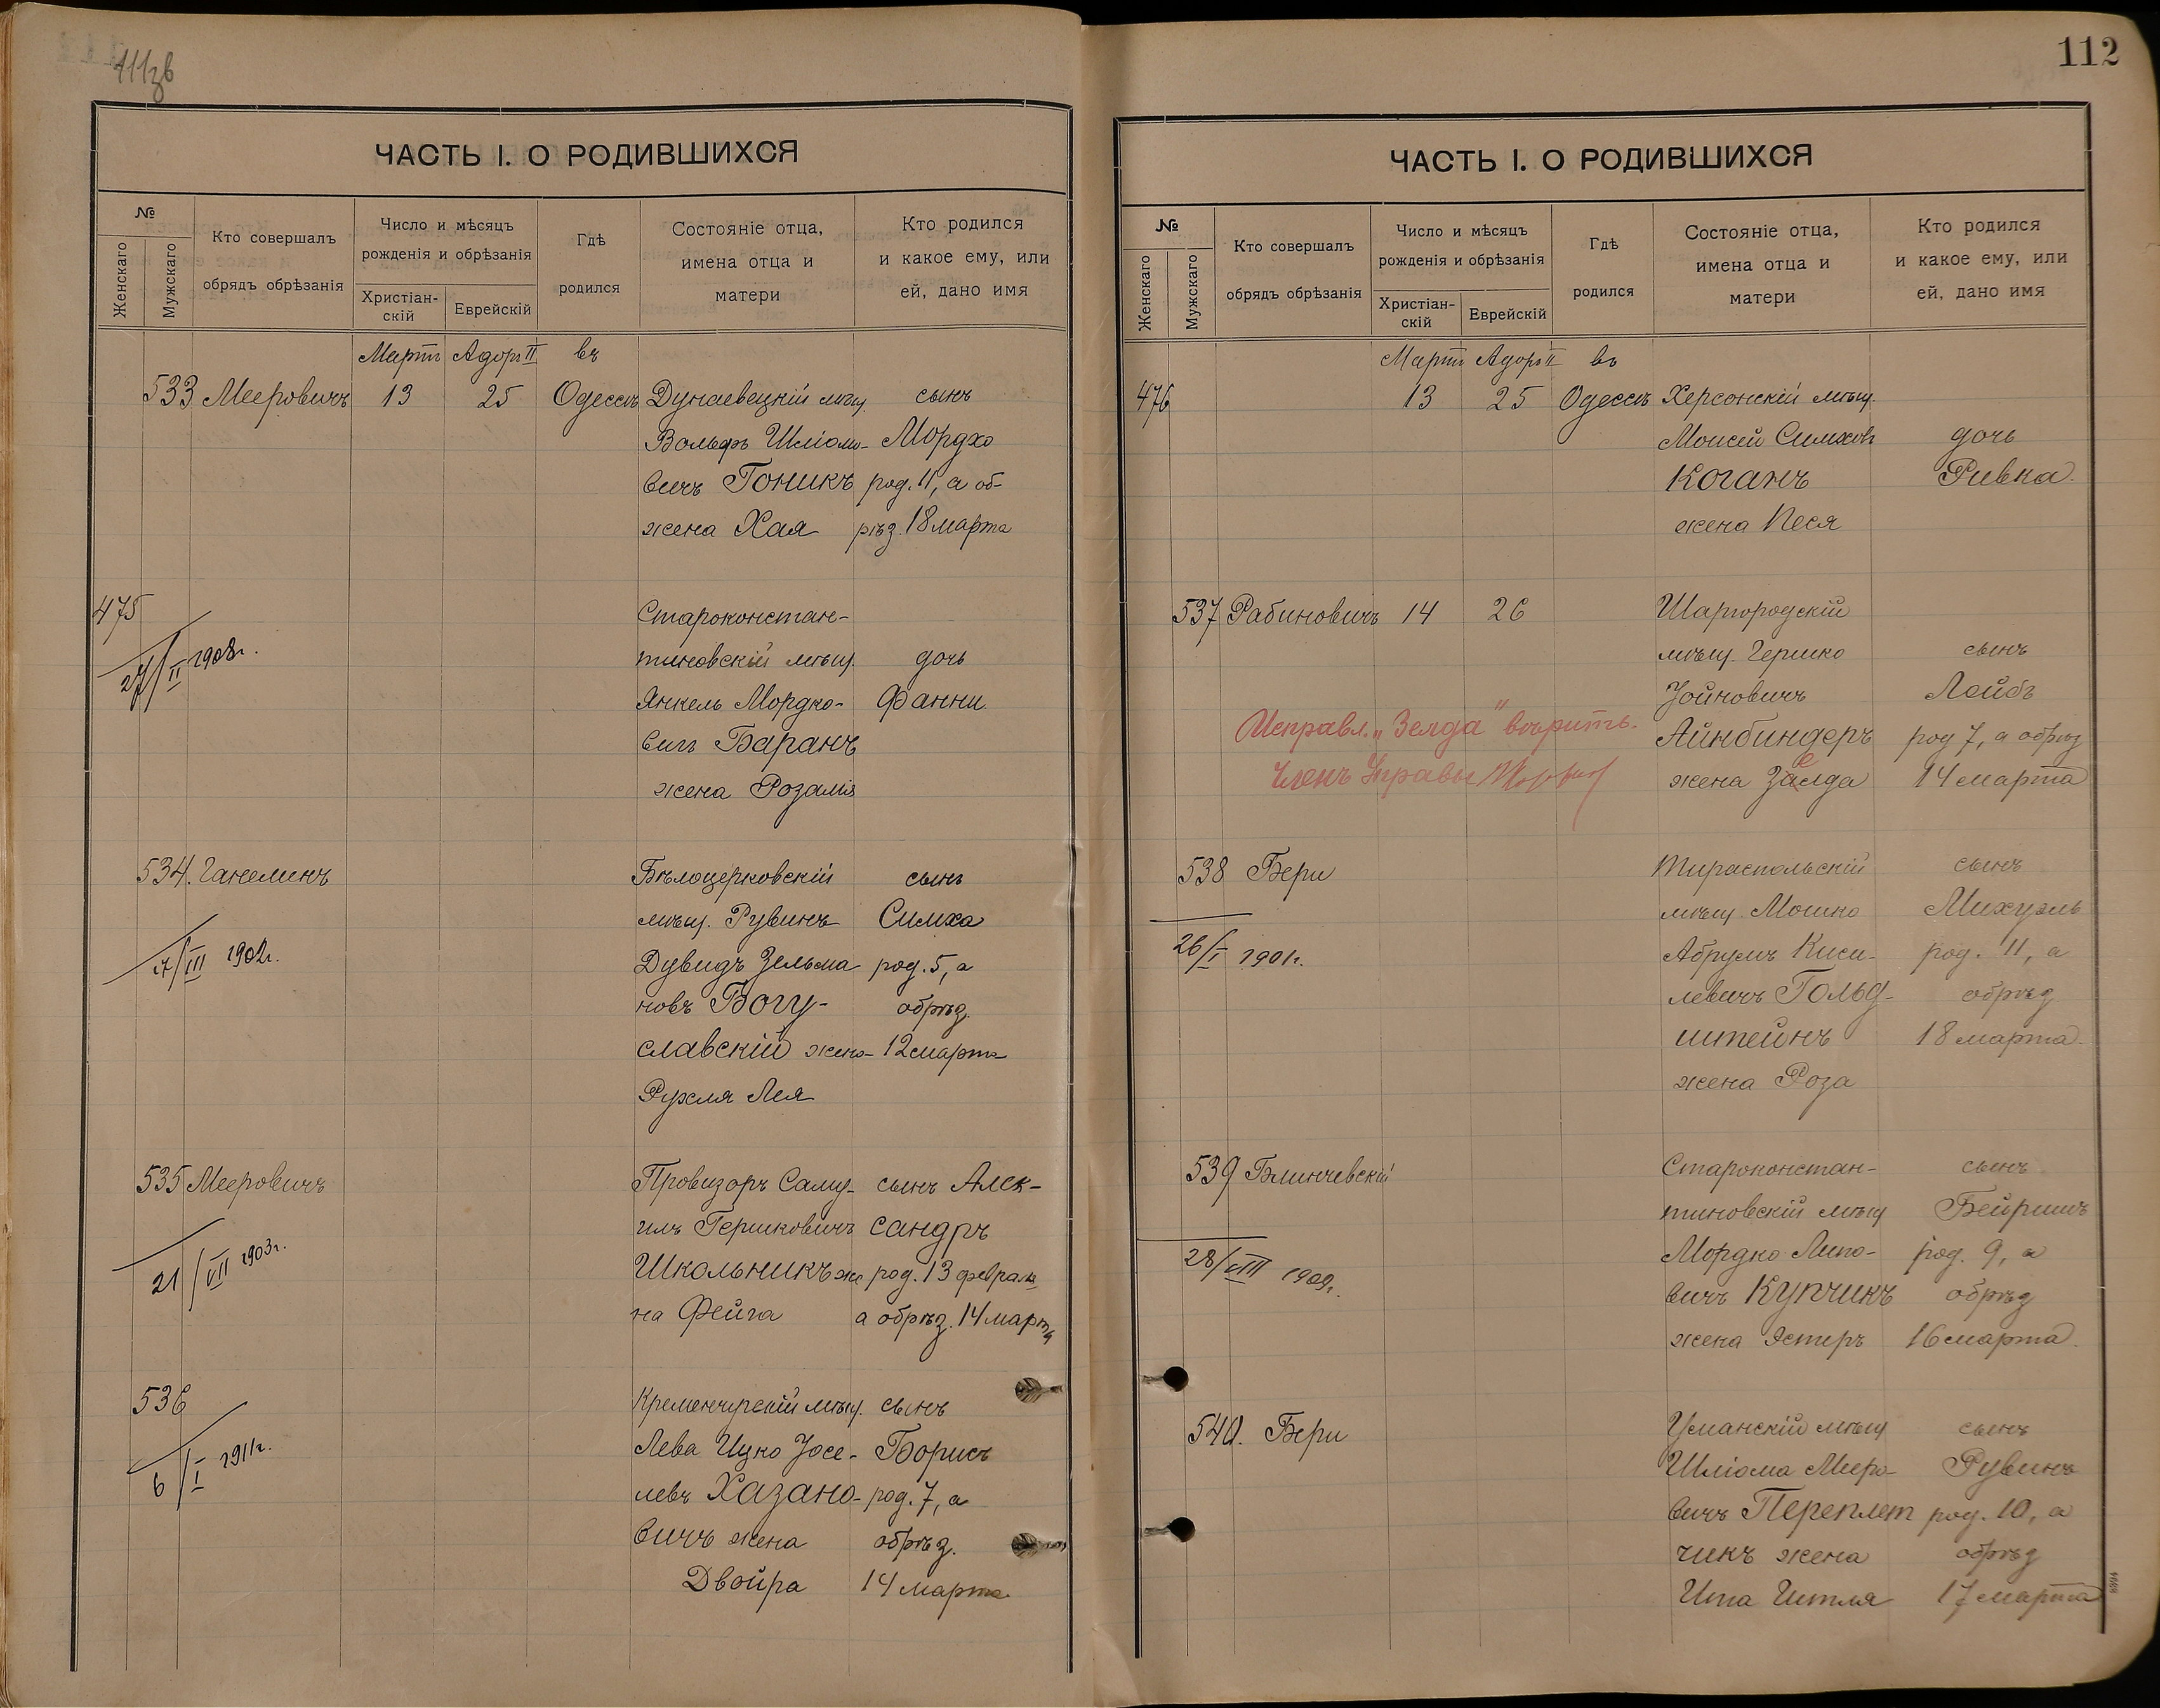 111зв
ЧАСТЬ I. О РОДИВШИХСЯ
№
Женскаго
Мужскаго
Кто совершалъ
обрядъ обрѣзанія
Число и мѣсяцъ
рожденія и обрѣзанія
Христіан-
скій
Еврейскій
Гдѣ
родился
Состояніе отца,
имена отца и
матери
Кто родился
и какое ему, или
ей, дано имя
Мартъ Адоръ II въ
533 Мееровичъ 13 25 Одессѣ Дунаевецкій мѣщ. сынъ
Вольфъ Шліомо- Мордхо
вичъ Гоникъ род. 11, а об-
жена Хая рѣз. 18 марта
475 Староконстан-
27/II 1908г. тиновскій мѣщ. дочь
Янкель Мордко- Фанни.
вичъ Баранъ
жена Розалія
534. Ганелинъ Бѣлоцерковскій сынъ
мѣщ. Рувинъ Симха
/III 1902г. Дувидъ Зельма род. 5, а
новъ Богу- обрѣз.
славскій жена 12 марта
Рухля Лея
535 Мееровичъ Провизоръ Саму- сынъ Алек-
илъ Гершковичъ сандръ
21/VII 1903г. Школьникъ же род. 13 февраля
на Фейга а обрѣз. 14 марта
536 Кременчугскій мѣщ. сынъ
Лева Ицко Іосе- Борисъ
6/I 1911г. левъ Хазано- род. 7, а
вичъ жена обрѣз.
Двойра 14 марта
112
ЧАСТЬ I. О РОДИВШИХСЯ
№
Женскаго
Мужскаго
Кто совершалъ
обрядъ обрѣзанія
Число и мѣсяцъ
рожденія и обрѣзанія
Христіан-
скій
Еврейскій
Гдѣ
родился
Состояніе отца,
имена отца и
матери
Кто родился
и какое ему, или
ей, дано имя
Мартъ Адоръ II въ
476 13 25 Одессѣ Херсонскій мѣщ.
Моисей Симховъ дочь
Коганъ Ривка.
жена Песя
537 Рабиновичъ 14 26 Шаргородскій
мѣщ. Гершко сынъ
Іойновичъ Лейбъ
Исправл. „Зелда" вѣрить. Айнбиндеръ род 7, а обрѣз
Членъ Управы жена Заелда 14 марта
538 Бери Тираспольскій сынъ
мѣщ. Мошко Михуэль
26/I 1901г. Абрумъ Киси- род. 11, а
левичъ Гольд- обрѣз
штейнъ 18 марта.
жена Роза
539 Блинчевскій Староконстан- сынъ
тиновскій мѣщ Бейришъ
28/VIII 1909г. Мордко Липо- род. 9, а
вичъ Купчикъ обрѣз
жена Эстеръ 16 марта.
540. Бери Уманскій мѣщ сынъ
Шліома Мееро- Рувинъ
вичъ Переплет род. 10, а
чикъ жена обрѣз
Ита Гитля 17 марта